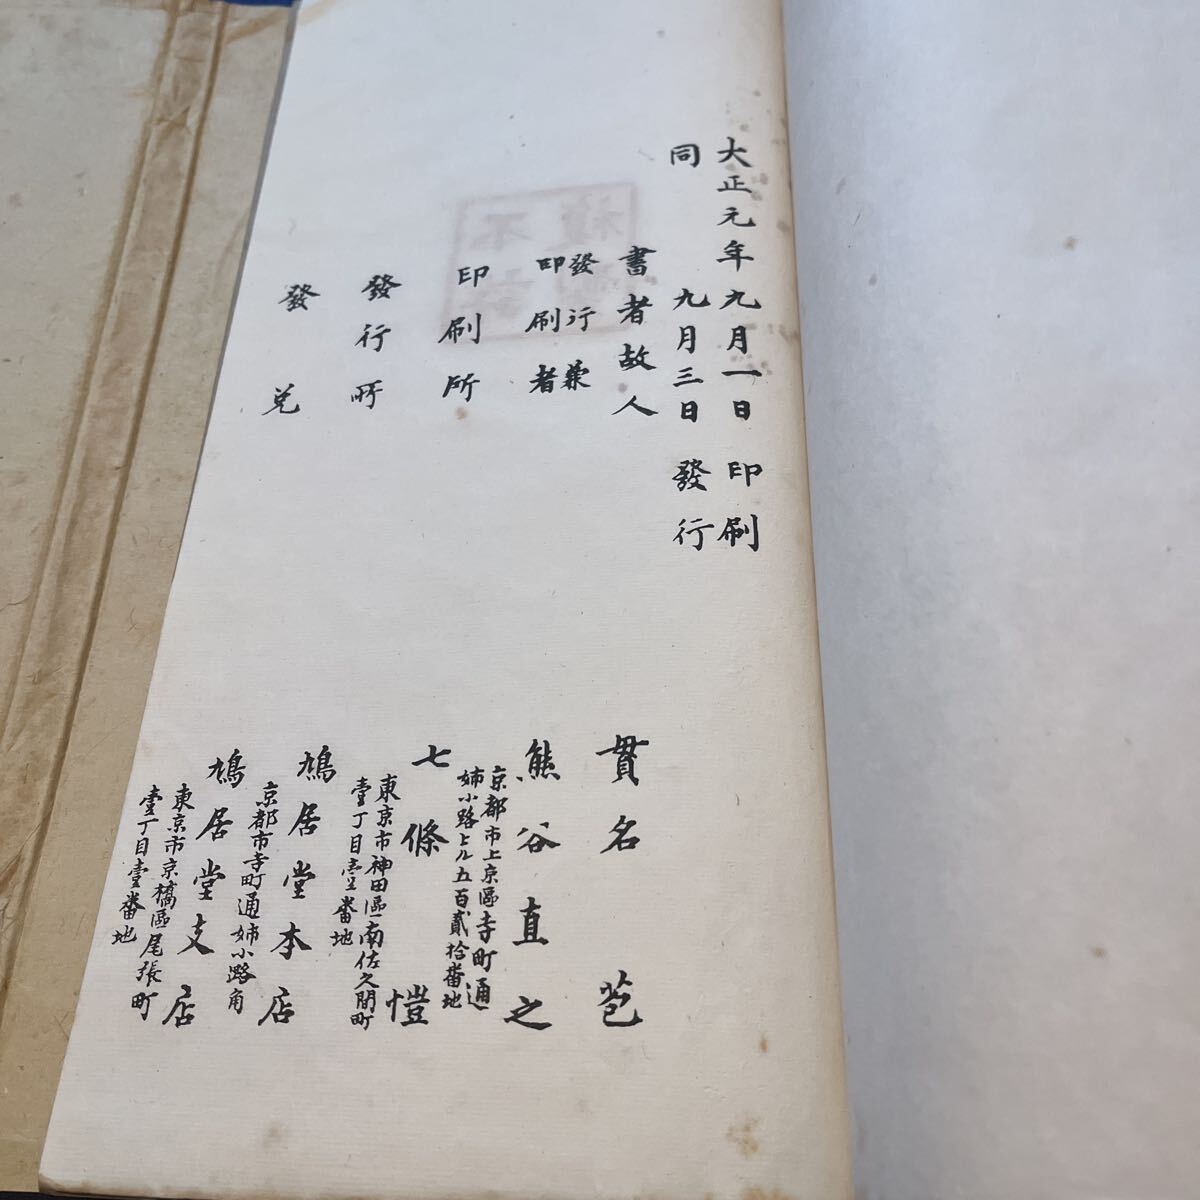 大正元年九月一日印刷
同九月三日發行
書者故人 貫名苞
發行兼印刷者 熊谷直之
京都市上京區寺町通
姉小路上ル五百貳拾番地
印刷所 七條愷
東京市神田區南佐久間町
壹丁目壹番地
發行所 鳩居堂本店
京都市寺町通姉小路角
發兌 鳩居堂支店
東京市京橋區尾張町
壹丁目壹番地